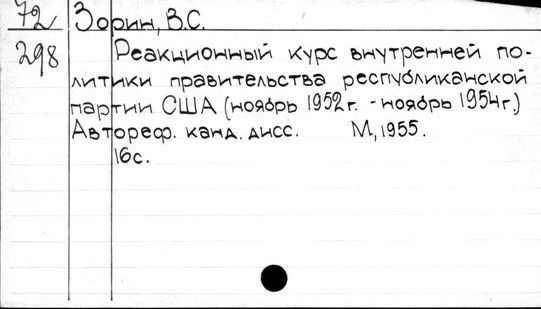 72 Зорин, В.С.
298 Реакционный курс внутренней по-
литики правительства республиканской
партии США (ноябрь 1952г. - ноябрь 1954г.)
Автореф. канд. дисс. М, 1955.
16с.